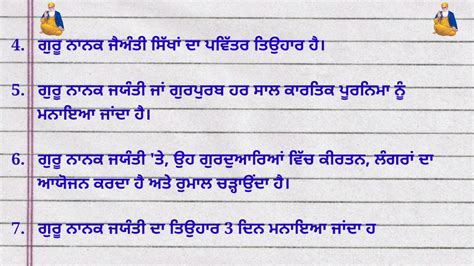 4. ਗੁਰੂ ਨਾਨਕ ਜੈਅੰਤੀ ਸਿੱਖਾਂ ਦਾ ਪਵਿੱਤਰ ਤਿਉਹਾਰ ਹੈ।
5. ਗੁਰੂ ਨਾਨਕ ਜਯੰਤੀ ਜਾਂ ਗੁਰਪੁਰਬ ਹਰ ਸਾਲ ਕਾਰਤਿਕ ਪੂਰਨਿਮਾ ਨੂੰ
ਮਨਾਇਆ ਜਾਂਦਾ ਹੈ।
6. ਗੁਰੂ ਨਾਨਕ ਜਯੰਤੀ 'ਤੇ, ਉਹ ਗੁਰਦੁਆਰਿਆਂ ਵਿੱਚ ਕੀਰਤਨ, ਲੰਗਰਾਂ ਦਾ
ਆਯੋਜਨ ਕਰਦਾ ਹੈ ਅਤੇ ਰੁਮਾਲ ਚੜ੍ਹਾਉਂਦਾ ਹੈ।
7. ਗੁਰੂ ਨਾਨਕ ਜਯੰਤੀ ਦਾ ਤਿਉਹਾਰ 3 ਦਿਨ ਮਨਾਇਆ ਜਾਂਦਾ ਹ